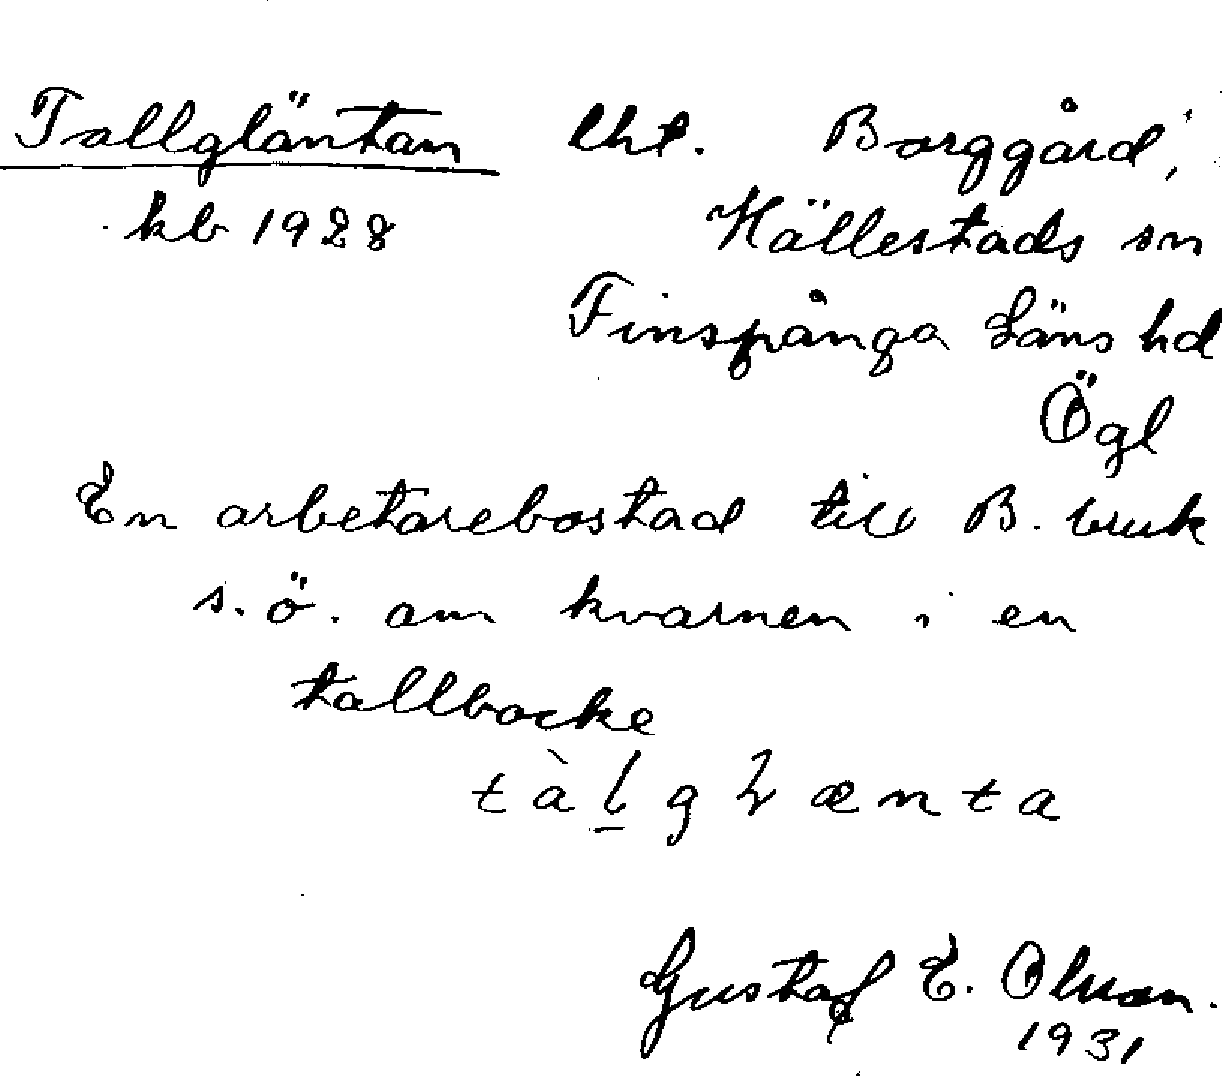 Tallgläntan lht. Borggård,
kb 1928 Hällestads sn
Finspånga Läns hd
Ögl
En arbetarebostad till B. bruk
s.ö. om kvarnen i en
tallbacke
tàl̲gⱡænta
Gustaf E. Olsson.
1931